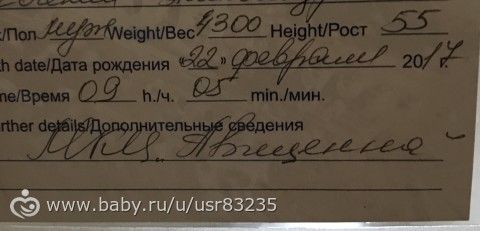 /Пол муж Weight/Вес 4300 Height/Рост 55
th date/Дата рождения "22" февраля 2017.
me/Время 09 h./ч. 05 min./мин.
rther details/Дополнительные сведения
МКЦ "Авиценна"
www.baby.ru/u/usr83235